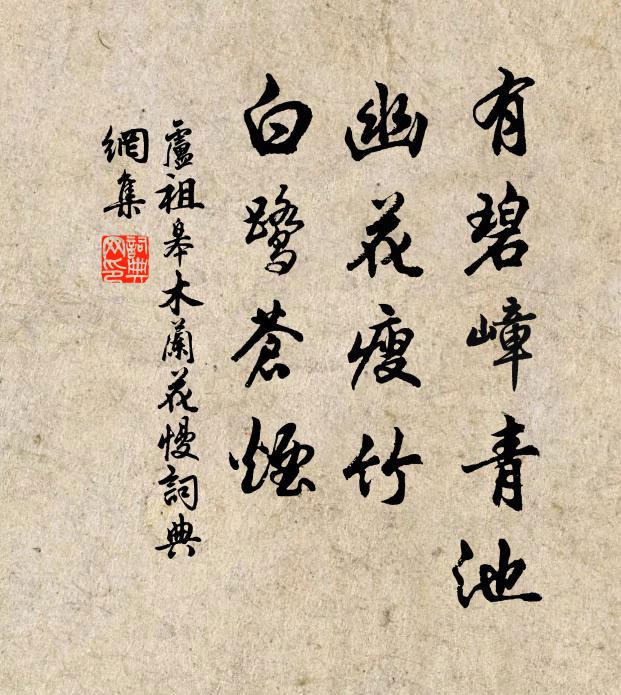 有碧嶂青池
幽花瘦竹
白鹭苍煙
盧祖皋木蘭花慢詞典
網集
詞典网印